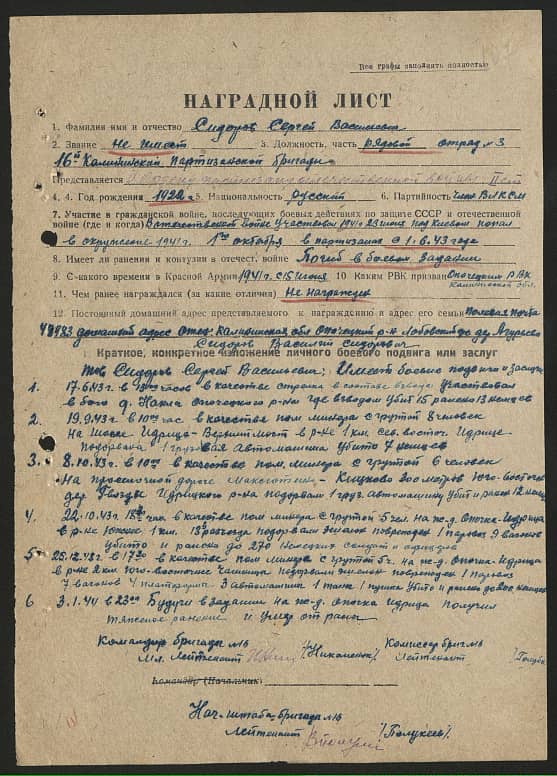 Все графы заполнять полностью
НАГРАДНОЙ ЛИСТ
1. Фамилия имя и отчество Сидоров Сергей Васильевич
2. Звание не имеет 3. Должность, часть рядовой отряд №3
16й Калининской Партизанской бригады
Представляется к ордену Отечественной войны II ст
4. Год рождения 1922 5. Национальность русский 6. Партийность член ВЛКСМ
7. Участие в гражданской войне, последующих боевых действиях по защите СССР и отечественной
войне (где и когда) Отечественной Войне Участвовал 1941 23 июня под Киевом попал
в окружение 1941г. 1го октября в партизанах с 1.6.43 года
8. Имеет ли ранения и контузии в отечеств. войне Погиб в боевом задании
9. С какого времени в Красной Армии 1941 с 15 июня 10 Каким РВК призван Опочецким РВК
Калининской обл.
11. Чем ранее награждался (за какие отличия) Не награжден
12. Постоянный домашний адрес представляемого к награждению и адрес его семьи Полевая почта
48983 домашний адрес Отец Калининская обл Опочецкий р-н Лобовский с/с дер
Сидоров Василий Сидорович
I. Краткое, конкретное изложение личного боевого подвига или заслуг
Тов Сидоров Сергей Васильевич; Имеет боевые подвиги и заслуги
1. 17.6.43г. в часов в качестве стрелка в составе взвода участвовал
в бою д. Опочецкого р-на где взводом убит 15 ранено 13 немцев
2. 19.9.43г в 10оо час в качестве пом. минера с группой 8 человек
на шоссе Идрица- в р-не 1 км. сев. восточ. Идрице
подорвана 1 грузовая автомашина убито 7 немцев
3. 8.10.43г в 10оо в качестве пом. минера с группой 6 человек
На проселочной дороге Максютино - 300 метров Юго-Восточ
дер Гвозды Идрицкого р-на подорвали 1 груз. автомашину убит и ранен 12 немцев
4. 22.10.43г. 18 часа в качестве пом минера с группой 5 чел. на ж.д. Опочка-Идрица
в р-не 1 км. разъезда подорвали эшелон поврежден 1 паровоз 9 вагонов
убито и ранено до 270 немецких солдат и офицеров
5. 25.12.43г. в 17 в качестве пом минера с группой 5ч. на ж.д. Опочка Идрица
в р-не 2 км. Юго-восточнее подорвали эшелон поврежден 1 паровоз
7 вагонов 4 платформы 3 автомашины 1 танк 1 пушка убито и ранено до немцев
6 3.1.44 в 23оо Будучи в задании на ж-д. Опочка Идрица получил
тяжелое ранение и умер от раны
Командир бригады №16 Комиссар бриг №16
Мл. Лейтенант /Никоненок/ Лейтенант
Командир (Начальник)
Нач. штаба бригады №16
Лейтенант